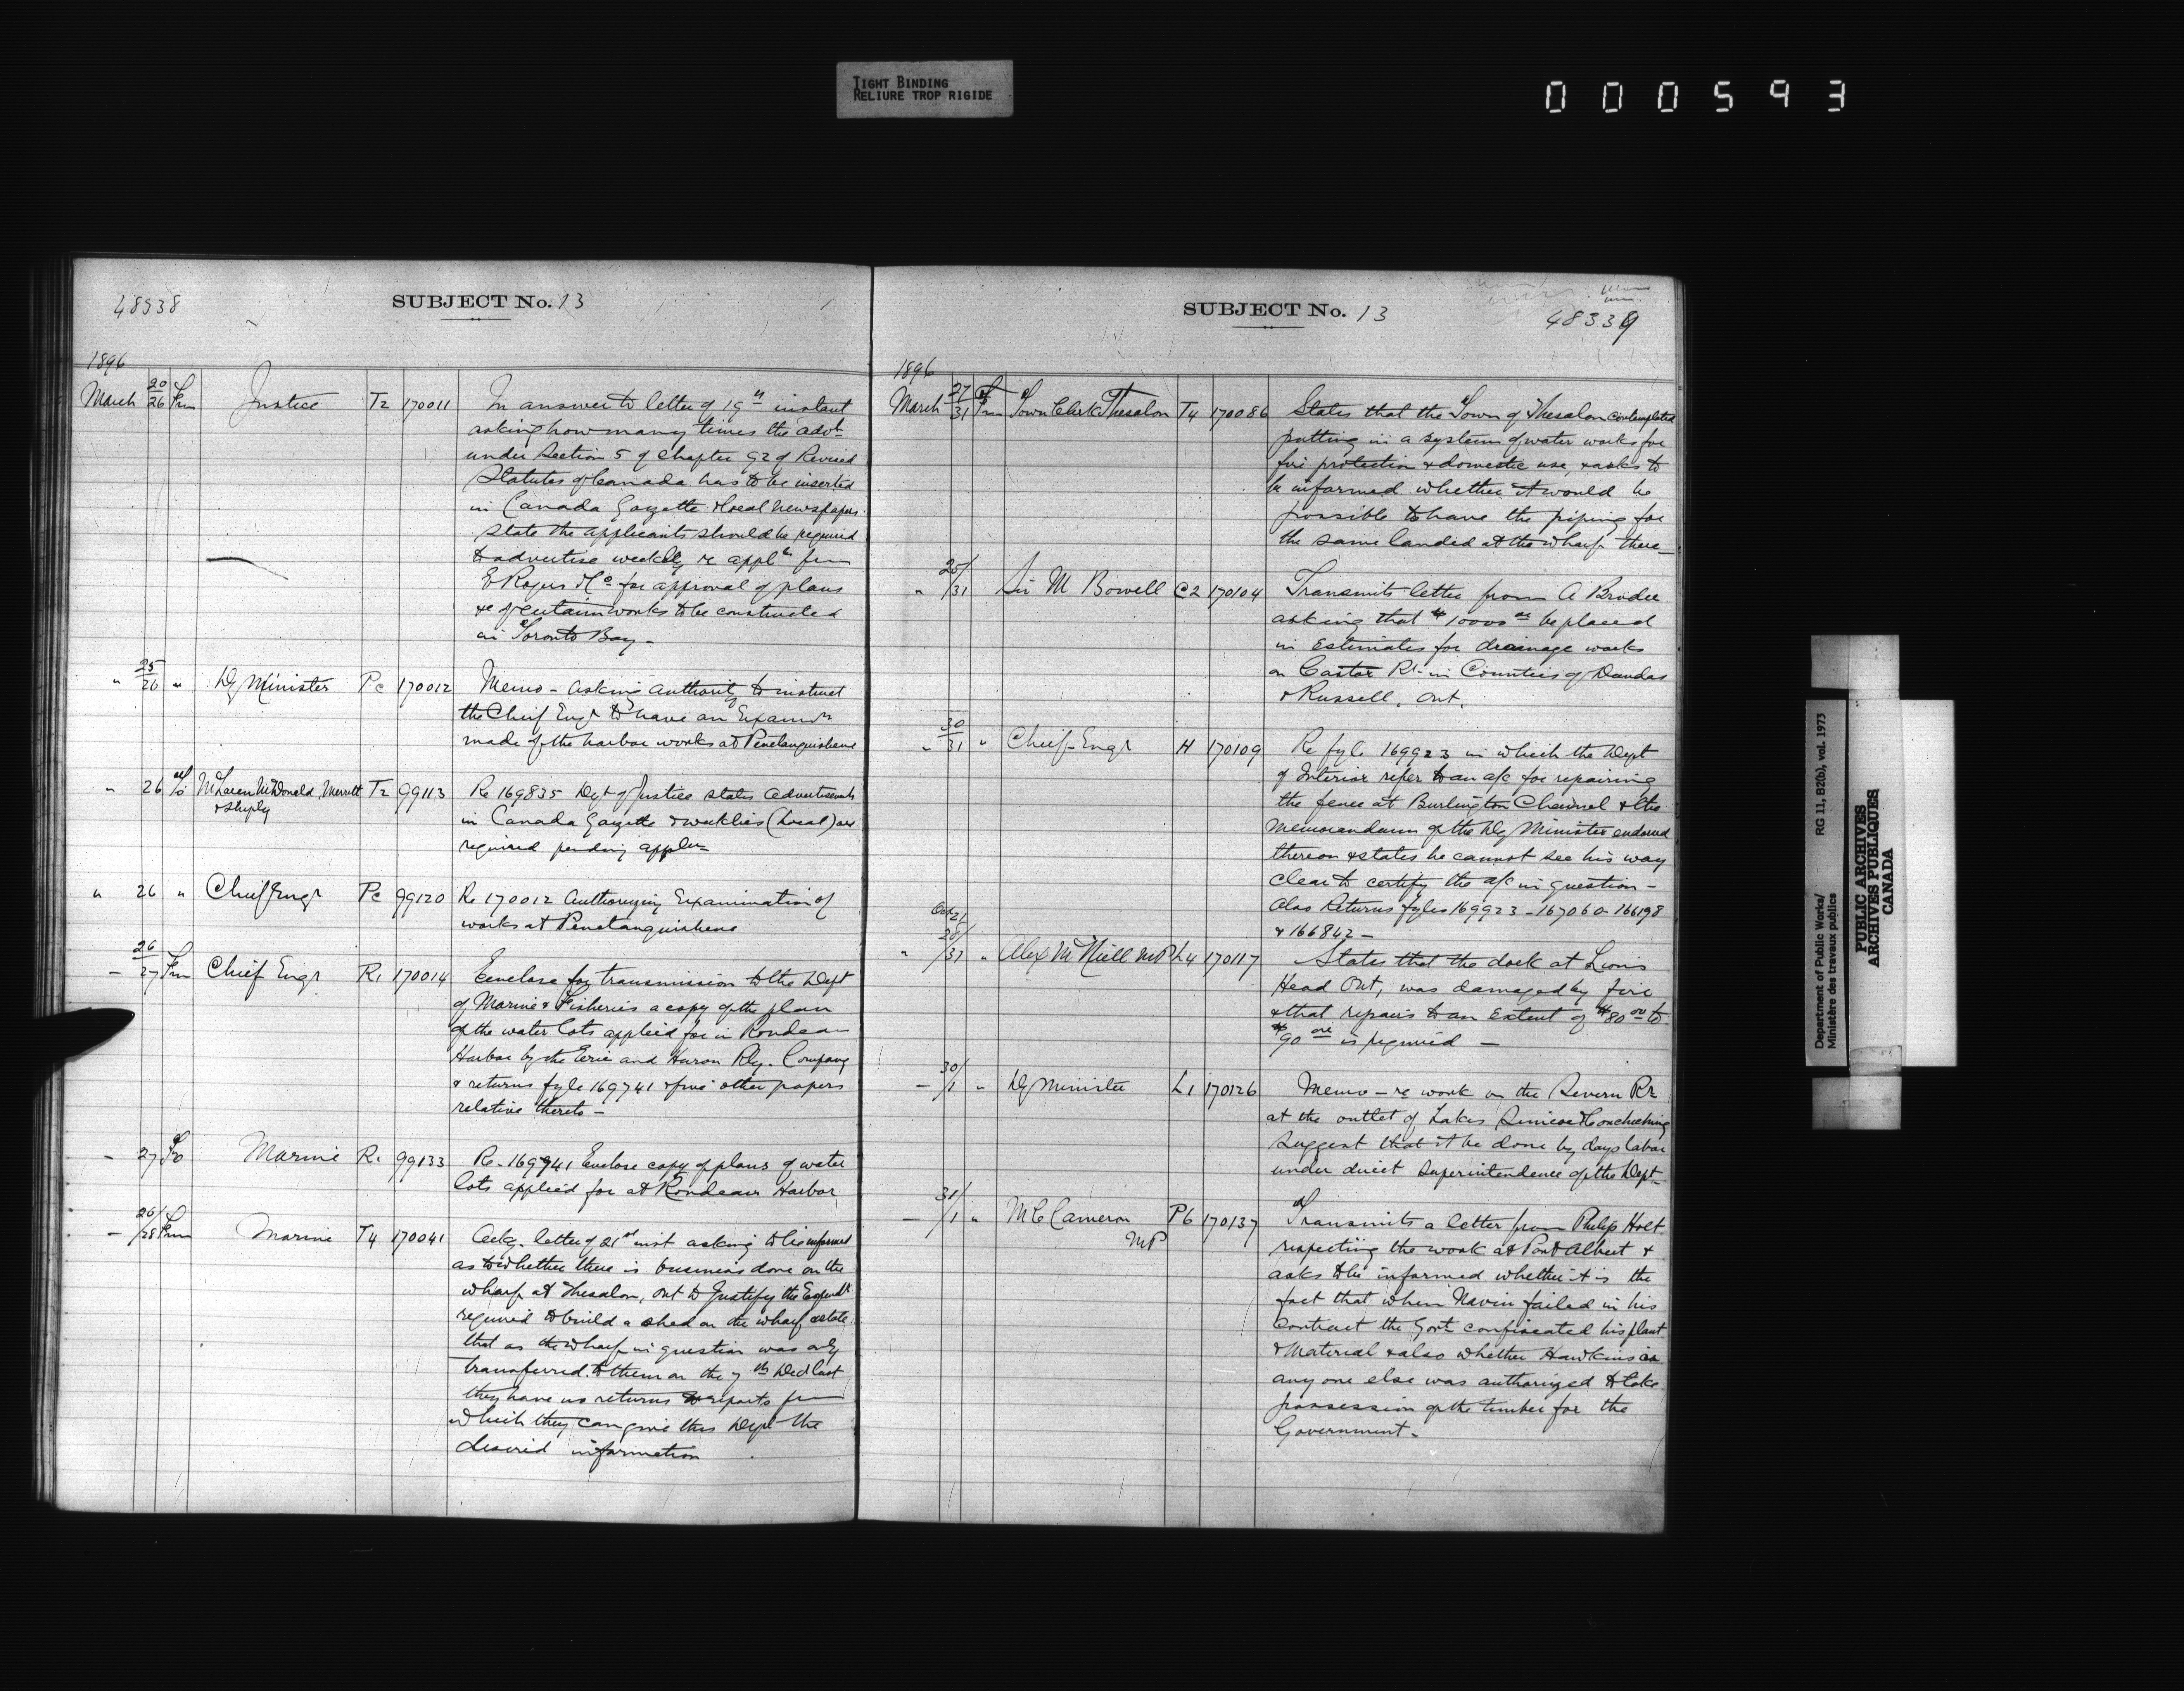 TIGHT BINDING
RELIURE TROP RIGIDE
000593
48538
SUBJECT No. 13
1896
March 20/26 Frm Justice T2 170011 In answer to letter of 19th instant
asking how many times the advt
under Section 5 of Chapter 92 of Revised
Statutes of Canada has to be inserted
in Canada Gazette & local newspapers.
State the applicants should be required
to advertise weekly re appln from
E Rogers & Co for approval of plans
&c of certain works to be constructed
in Toronto Bay -
" 25/26 " Dy Minister Pe 170012 Memo - asking authority to instruct
the Chief Engr to have an Examn
made of the harbor works at Penetanguishene
" 26 To McLaren McDonald Merritt T2 99113 Re 169835 Dept of Justice states advertisements
& Shepley in Canada Gazette & weeklies (local) are
required pending appln
" 26 " Chief Engr Pe 99120 Re 170012 Authorizing Examination of
works at Penetanguishene
- 26/27 Frm Chief Engr R1 170014 Enclose for transmission to the Dept
of Marine & Fisheries a copy of the plan
of the water lots applied for in Rondeau
Harbor by the Erie and Huron Rly. Company
& returns fyle 169741 & five other papers
relative thereto -
- 27 To Marine R1 99133 Re - 169741 Enclose copy of plans of water
lots applied for at Rondeau Harbor
- 26/28 Frm Marine T4 170041 Ackg. letter of 21st inst asking to be informed
as to whether there is business done on the
wharf at Thesalon, Ont to Justify the Expendt
required to build a shed on the wharf, & state
that as the wharf in question was only
transferred to them on the 7th Decr last
they have no returns or reports from
which they can give this Dept the
desired information
SUBJECT No. 13
48339
1896
March 27/31 Frm Town Clerk Thesalon T4 170086 States that the Town of Thesalon contemplated
putting in a system of water works for
fire protection & domestic use, & asks to
be informed whether it would be
possible to have the piping for
the same landed at the wharf there -
" 25/31 Sir M Bowell C2 170104 Transmits letter from A Brodie
asking that $10000 00 be placed
in Estimates for drainage works
on Castor Rr - in Counties of Dundas
& Russell, Ont.
" 30/31 " Chief Engr H 170109 Re fyle 169923 in which the Dept
of Interior refer to an a/c for repairing
the fence at Burlington Channel & the
memorandum of the Dy Minister endorsed
thereon & states he cannot see his way
clear to certify the a/c in question -
Also Returns fyles 169923 - 167060 - 166198
& 166842 -
" 28/31 " Alex McNeill MP L4 170117 States that the dock at Lions
Head Ont, was damaged by fire
& that repairs to an Extent of $80 00 to
$90 00 is required -
- 30/1 " Dy Minister L1 170126 Memo - re work on the Severn Rr
at the outlet of Lakes Simcoe & Couchiching
Suggest that it be done by days labor
under direct Superintendence of the Dept -
- 31/1 " M C Cameron P6 170137 Transmits a letter from Philip Holt
MP respecting the work at Port Albert &
asks to be informed whether it is the
fact that when Navin failed in his
Contract the Govt confiscated his plant
& Material & also whether Hawkins or
any one else was authorized to take
possession of the timber for the
Government -
Department of Public Works/ RG 11, B2(b), vol. 1973
Ministère des travaux publics
PUBLIC ARCHIVES
ARCHIVES PUBLIQUES
CANADA